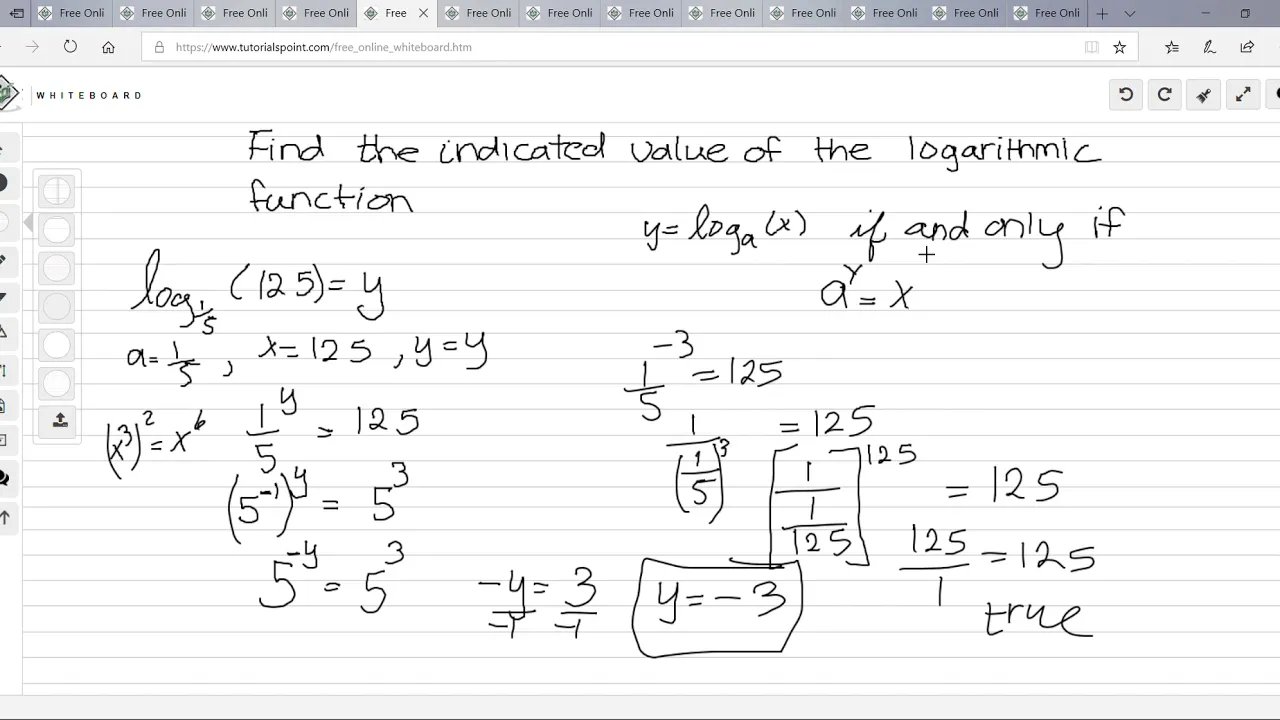 Free Onli Free Onli Free Onli Free Onli Free Free Onli Free Onli Free Onli Free Onli Free Onli Free Onli Free Onli Free Onli
https://www.tutorialspoint.com/free_online_whiteboard.htm
WHITEBOARD
Find the indicated value of the logarithmic
function
y = logₐ(x) if and only if
a^y = x
log_1/5 (125) = y
a = 1/5, x = 125, y = y
(x³)² = x⁶
1/5^y = 125
(5^-1)^y = 5^3
5^-y = 5^3
-y/-1 = 3/-1
y = -3
1/5^-3 = 125
1/(1/5)^3 = 125
[1/(1/125)]^125 = 125
125/1 = 125
true